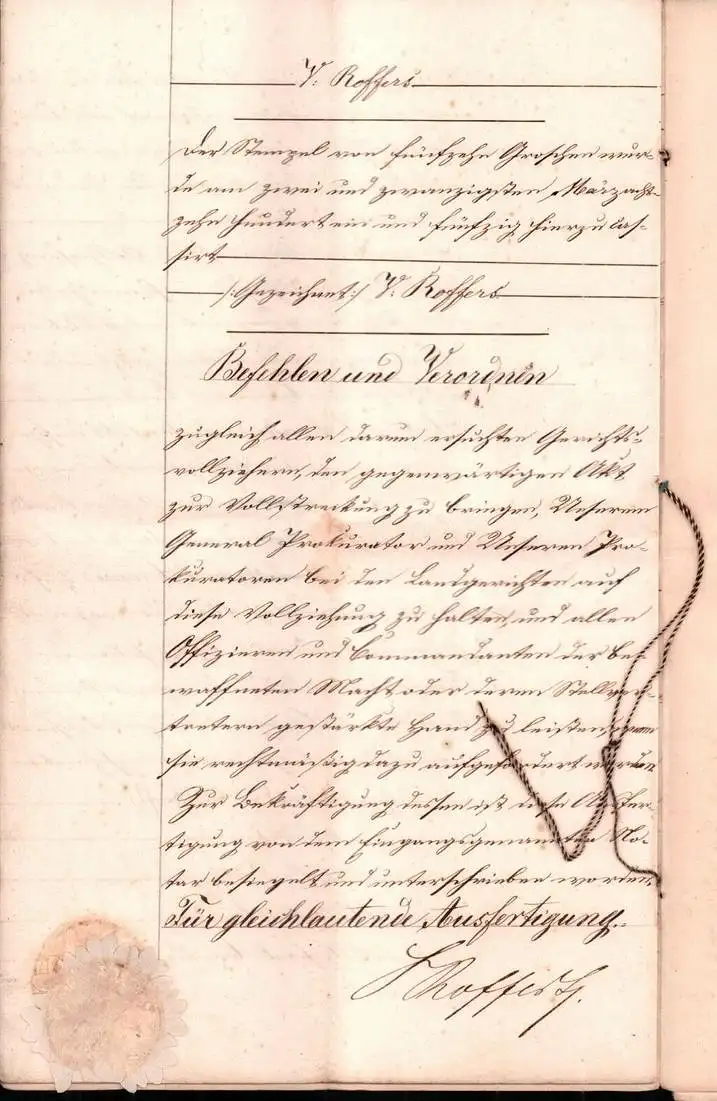 V. Roffers
Der Stempel von fünfzehn Groschen wur-
de am zwei und zwanzigsten März acht-
zehn hundert ein und fünfzig hierzu cas-
sirt
/:Gezeichnet:/ V. Roffers
Befehlen und Verordnen
zugleich allen darum ersuchten Gerichts-
vollziehern, den gegenwärtigen Akt
zur Vollstreckung zu bringen, Unserem
General Prokurator und Unseren Pro-
kuratoren bei den Landgerichten auf
diese Vollziehung zu halten, und allen
Offizieren und Commandanten der be-
waffneten Macht oder deren Stellver-
tretern gestärkte Hand zu leisten, wenn
sie rechtmäßig dazu aufgefordert werden.
Zur Bekräftigung dessen ist diese Ausfer-
tigung von dem Eingangsgenannten No-
tar besiegelt und unterschrieben worden.
Für gleichlautende Ausfertigung.
Roffers